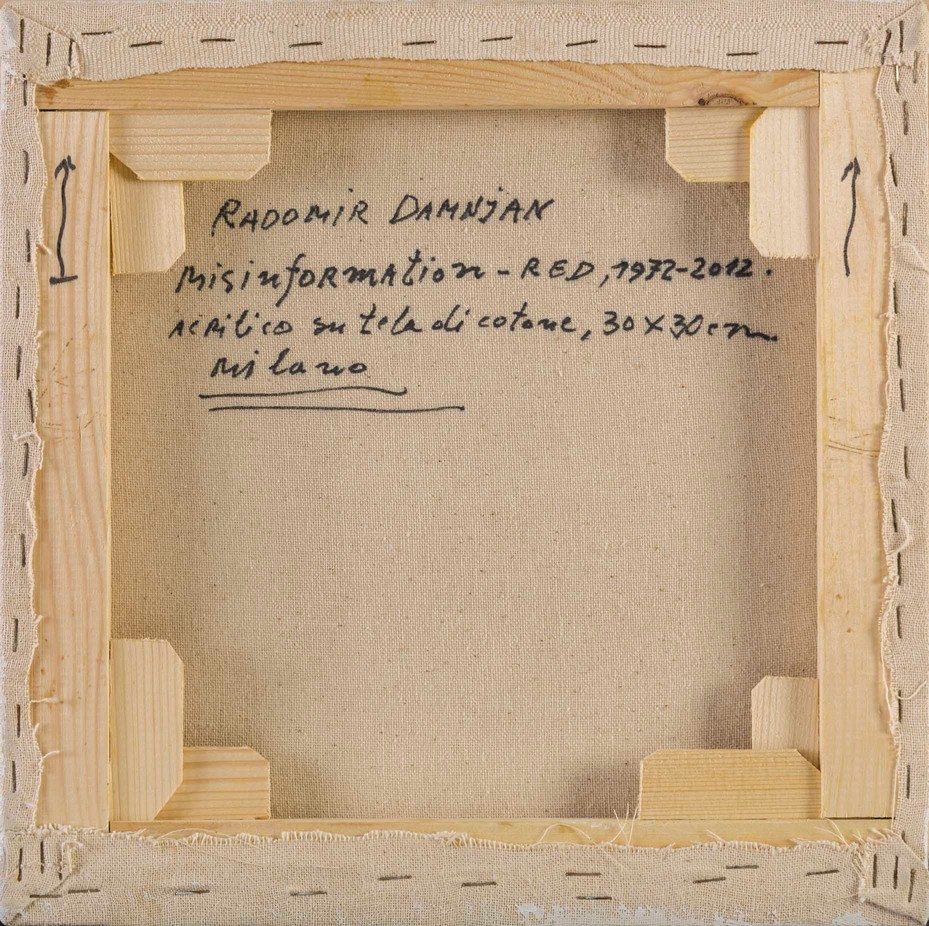 RADOMIR DAMNJAN
MisinfoRMAtion - RED, 1972-2012.
ACRilico su tela di cotone, 30 X 30 cm
Milano